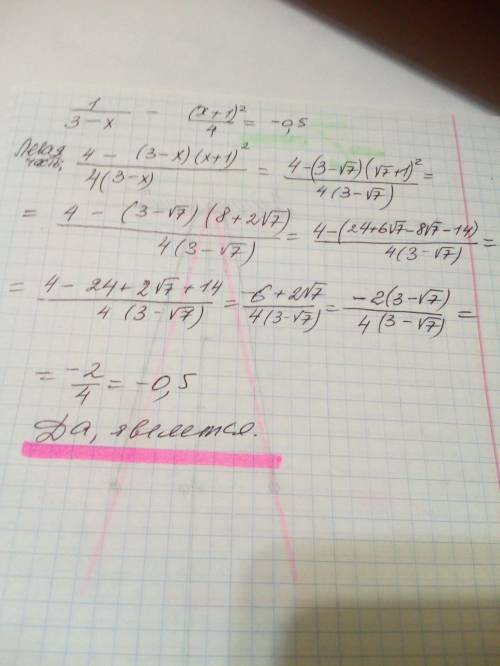 1/(3-x) - (x+1)²/4 = -0,5
Левая часть: (4 - (3-x)(x+1)²)/(4(3-x)) = (4-(3-√7)(√7+1)²)/(4(3-√7)) =
= (4 - (3-√7)(8+2√7))/(4(3-√7)) = (4-(24+6√7-8√7-14))/(4(3-√7)) =
= (4 - 24+2√7+14)/(4(3-√7)) = (-6+2√7)/(4(3-√7)) = (-2(3-√7))/(4(3-√7)) =
= -2/4 = -0,5
Да, является.